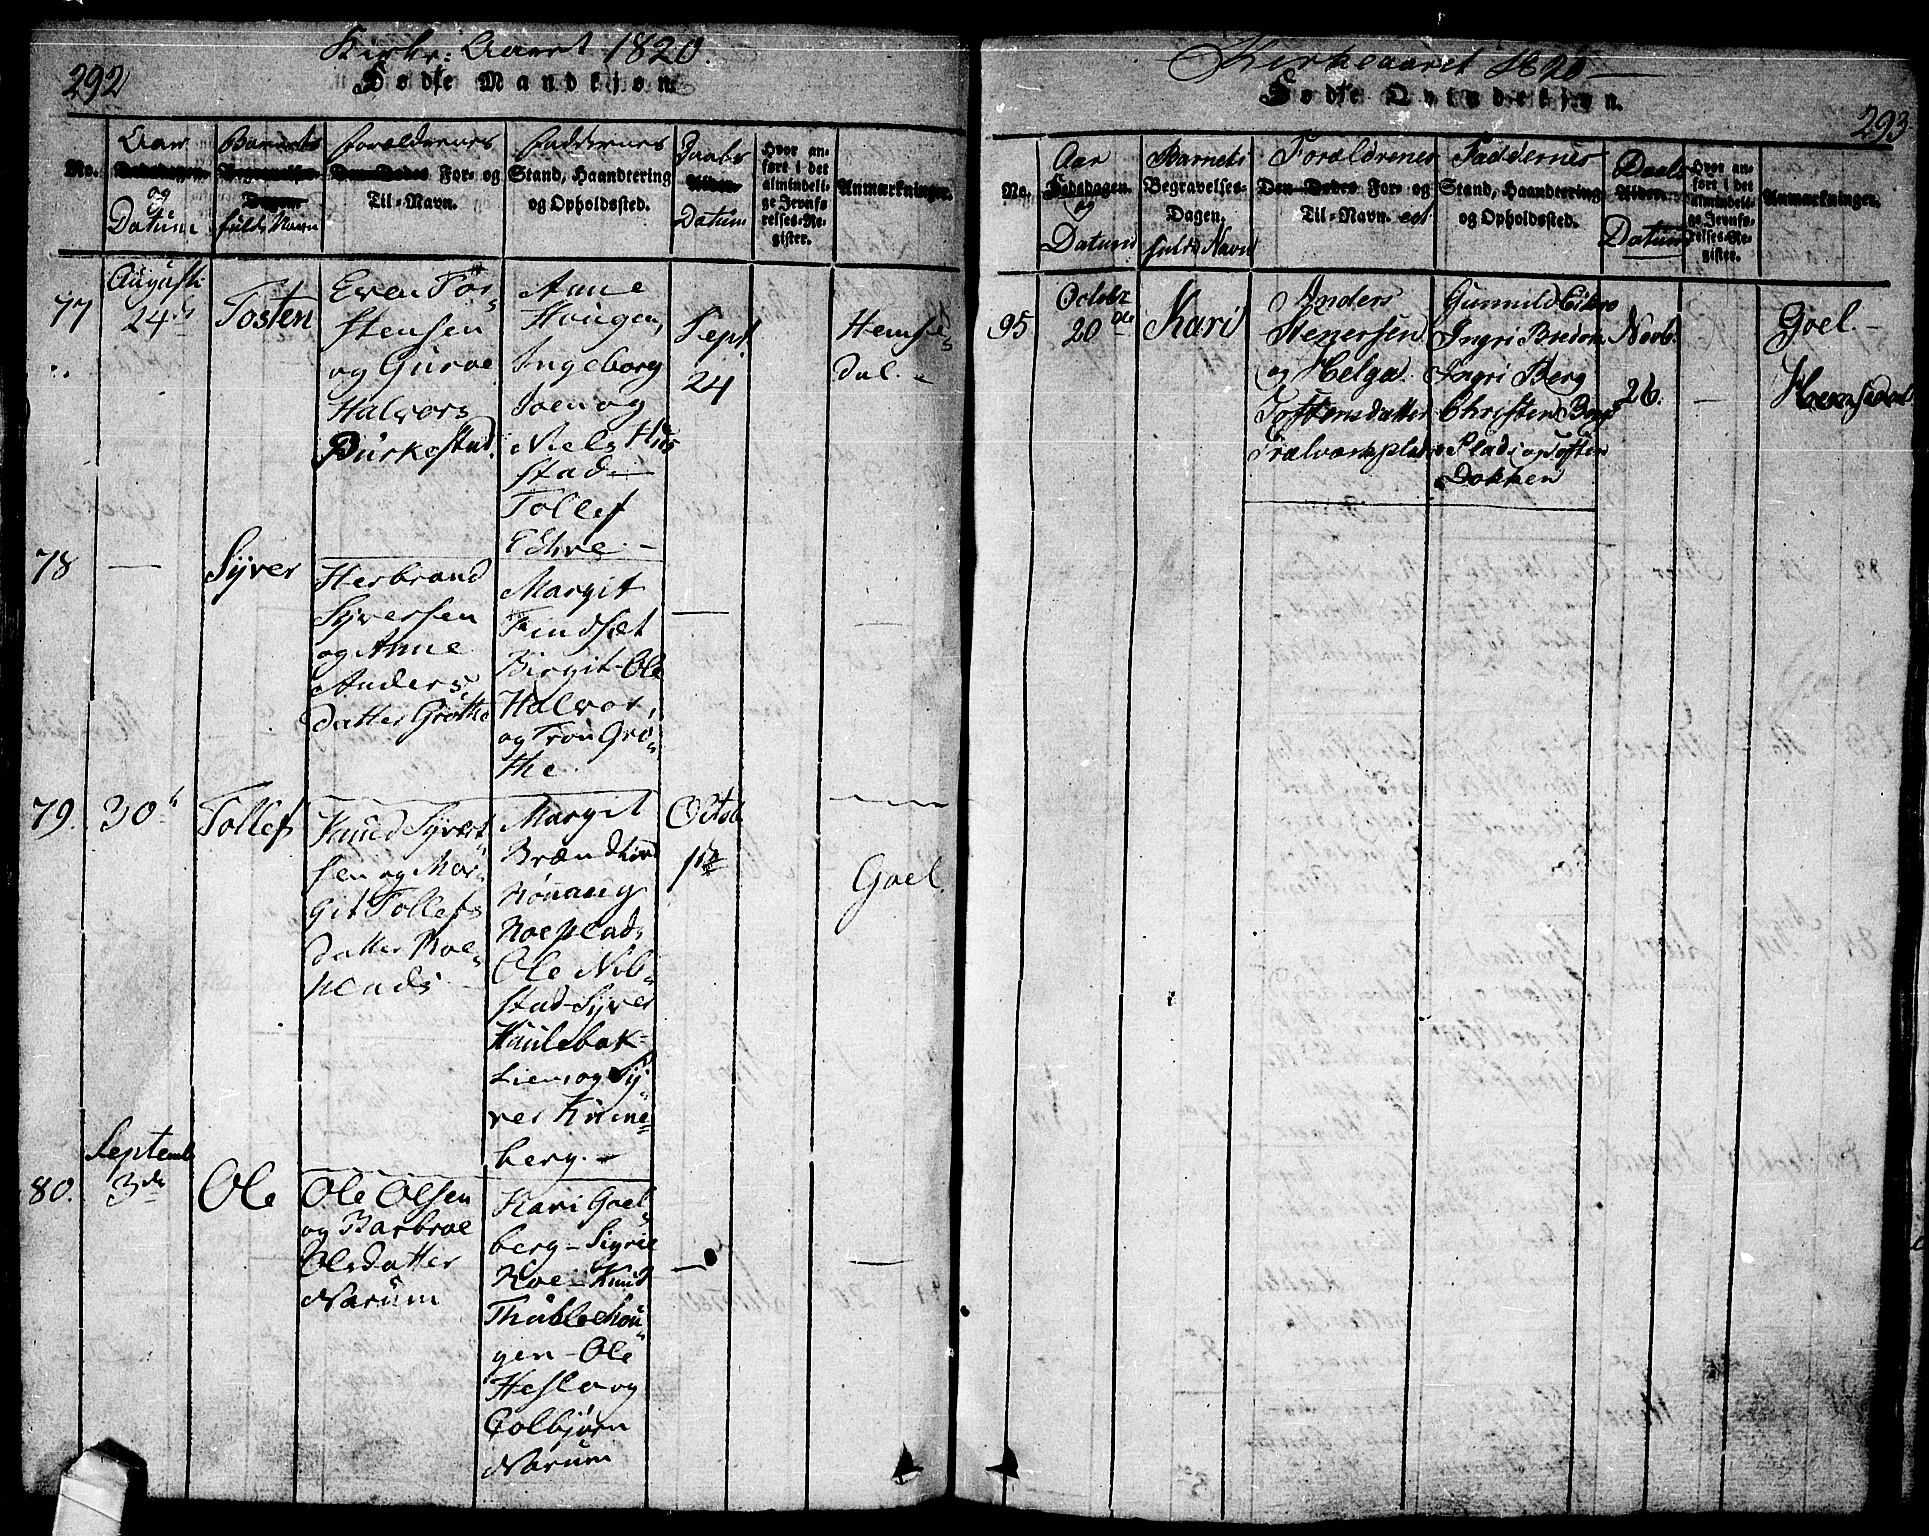 292
Kirke: Aaret 1820.
Døde Mandkjøn
No.
Aar
Dødsdagen.
og
Datum
Barnets
Begravelses-
Dagen
fulde Navn
Forældrenes
Den Dødes For- og
Til-Navn.
Faddernes
Stand, Haandtering
og Opholdssted.
Daabs
Alder.
Datum
Hvor an-
ført i det
almindeli-
ge Jevnfø-
relses-Re-
gister.
Anmærkninger.
77
August
24de
Tosten
Even Tor-
stensen
og Guroe
Halvors
Birkestad.
Anne
Hougen,
Ingeborg
Joen og
Niels Hus
stad
Tollef
Ethre
Sept.
24
Hemse-
dal.
78
—
Syver
Herbrand
Syversen
og Anne
Anders
datter Grøthe
Margit
Findsæt
Birgit-Ole
Halvor,
og Tron Grø-
the.
—
—
79.
30te
Tollef
Knud Syvert-
sen og Mar-
git Tollefs
datter Roe-
plads
Margit
Brændhovd
Rønnaug
Roeplads
Ole Nib-
stad-Syver
Huulebak-
Lien og Sy-
ver Kinne-
berg.
Octob.
1te
Goel.
80.
Septemb
3de
Ole
Ole Olsen
og Barbroe
Olsdatter
Narum
Kari Goel-
berg-Sigrie
Roe-Knud
Thuble Hou-
gen-Ole
Hesla og
Colbjørn
Narum
—
—
Kirkeaaret 1820
Døde Qvindekjøn.
293
No.
Aar
Dødsdagen.
og
Datum
Barnets
Begravelses-
Dagen.
fulde Navn
Forældrenes
Den Dødes For- og
Til-Navn.
Faddernes
Stand, Haandtering
og Opholdssted.
Daabs
Alder.
Datum
Hvor an-
ført i det
almindeli-
ge Jevnfø-
relses-Re-
gister.
Anmærkninger.
95
Octobr
20de
Kari
Anders
Stenersen
og Helga
Tostensdatter
Trælvangplads
Gunnild Eikro
Ingri Breden
Ingri Berg
Christen Berg
Plads og Tosten
Dokken
Novb.
26.
—
Goel.
Hoemsedal